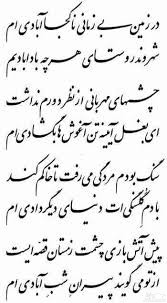 در زمین بی زمانی ناکجا آبادی ام
شهروند روستای هر چه بادابادیم
چشمهای مهربانی از نظر دورم نداشت
ای بغل آیینه تن آغوش ها بگشادی ام
سنگ بودم مردگی می رفت تا خاکم کند
بادم گلسنگی ات دنیای دیگر دادی ام
پیش آتش بازی چشمت زمستان قصه ایست
از تو می گویند پیران شب آبادی ام